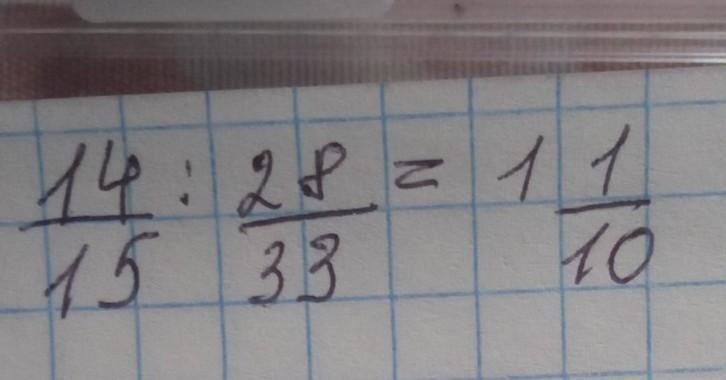 14/15 : 28/33 = 1 1/10